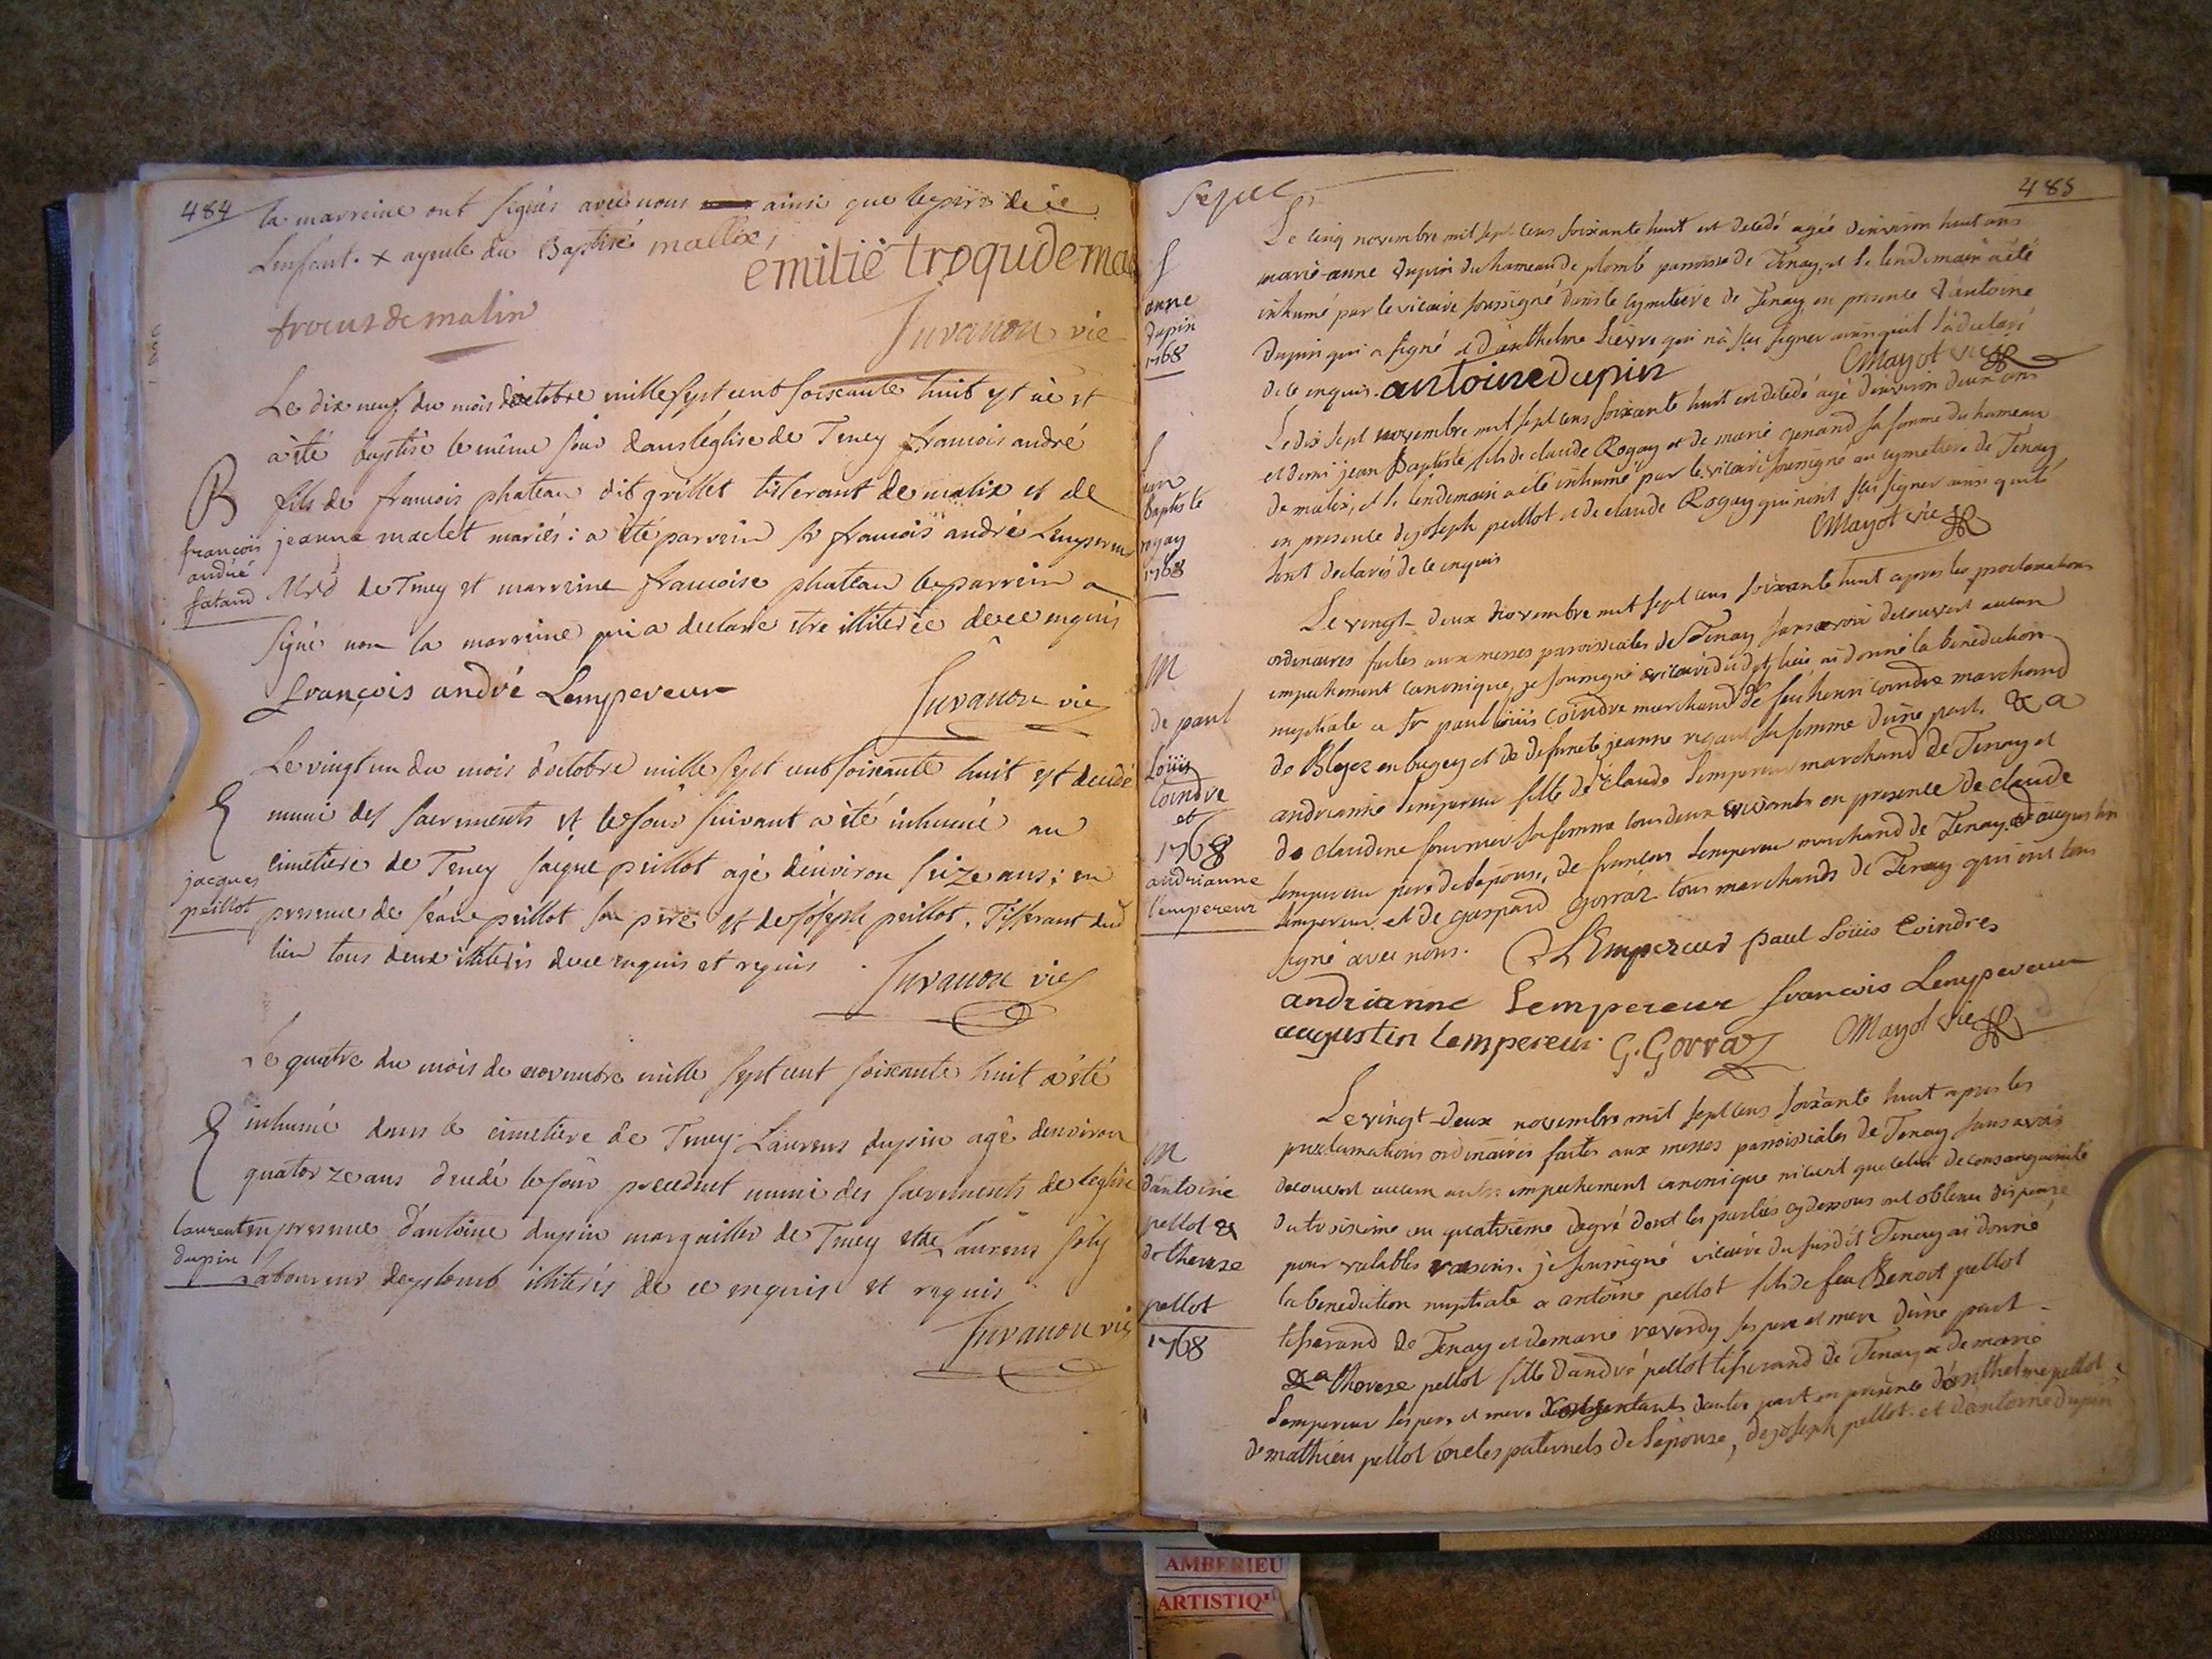 484
la marreine ont signés avec nous ainsi que le pere de
Lenfant. x ayeule du Baptisé malix,
emilie troqudema
trocus de malin
Juvanon vic
Le dix neuf du mois d'octobre mille sept cent soixante huit est né et
a été baptisé le même jour dans l'église de Teney francois andré
B
fils de francois phateau dit grillet tisserant de malix et de
françois
andré
fatand
jeanne maclet mariés: a été parrein sr francois andré Lempereur
Mrd de Teney et marreine francoise phateau le parrein a
signé non la marreine qui a declaré etre illiterée de ce enquis
françois andré Lempereur
Juvanon vic
Le vingt un du mois d'octobre mille sept cent soixante huit est decedé
muni des sacrements et le jour suivant a été inhumé au
cimetiere de Teney jacque peillot agé d'environ seize ans; en
jacques
peillot
presence de jean peillot son pere et de joseph peillot. Tisserant dud
lieu tous deux illiterés de ce enquis et requis
Juvanon vic
Le quatre du mois de novembre mille sept cent soixante huit a été
inhumé dans le cimetiere de Teney Laurens dupin agé denviron
quatorze ans decedé le jour precedent muni des sacrements de l'église
laurent
dupin
en presence d'antoine dupin margailler de Teney et de Laurens joly
Laboureur de plomb illiterés de ce enquis et requis
Juvanon vic
485
Le cinq novembre mil sept cens soixante huit est decedé agée d'environ huit ans
S
anne
dupin
1768
marie-anne dupin du hameau de plomb parroisse de Tenay, et le lendemain a été
inhumé par le vicaire soussigné dans le cymetiere de Tenay en presence d'antoine
dupin qui a signé et d'anthelme Lièvre qui n'a sçu signer ainsi qu'il l'a declaré
de ce enquis. antoine dupin
Mayot vic
Le dix sept novembre mil sept cens soixante huit est decedé agé d'environ deux ans
S
jean
baptiste
rogay
1768
et demi jean Baptiste fils de claude Rogay et de marie genand sa femme du hameau
de malix, et le lendemain a été inhumé par le vicaire soussigné au cymetiere de Tenay
en presence de joseph peillot et de claude Rogay qui n'ont sçu signer ainsi qu'ils
sont declarés de ce enquis
Mayot vic
Le vingt-deux novembre mil sept cens soixante huit apres les proclamations
M
de paul
Loüis
Coindre
et
1768
andrianne
l'empereur
ordinaires faites aux messes paroissiales de Tenay sans avoir decouvert aucun
empechement canonique, je soussigné vicaire dudt lieu ai donné la benediction
nuptiale a sr paul loüis Coindre marchand de feu henri coindre marchand
de Bleyez en bugey et de defuncte jeanne sa femme d'une part. & a
andrianne lempereur fille de sr claude Lempereur marchand de Tenay et
de claudine fournier sa femme tous deux en presence de claude
Lempereur pere de l'epouse, de françois Lempereur marchand de Tenay. d'augustin
Lempereur et de gaspard gorraz tous marchands de Tenay qui ont tous
signé avec nous. C L'Empereur paul Loüis Coindre
andrianne Lempereur francois Lempereur
augustin lempereur G. Gorraz Mayot vic
Le vingt-deux novembre mil sept cens soixante huit apres les
M
d'antoine
pellot &
de therese
pellot
1768
proclamations ordinaires faites aux messes parroissiales de Tenay sans avoir
decouvert aucun autre empechement canonique ni civil que celui de consanguinité
du troisieme au quatrième degré dont les parties cy dessous ont obtenu dispense
pour valables raisons. je soussigné vicaire du susdit Tenay ai donné
la benediction nuptiale a antoine pellot fils de feu Benoit pellot
tisserand de Tenay et de marie reverdy ses pere et mere d'une part
& a therese pellot fille d'andré pellot tisserand de Tenay & de marie
Lempereur ses pere et mere consentants d'autre part en presence d'anthelme pellot
de mathieu pellot oncles paternels de l'epouse, de joseph pellot. et d'antoine dupin
AMBERIEU
ARTISTIQ